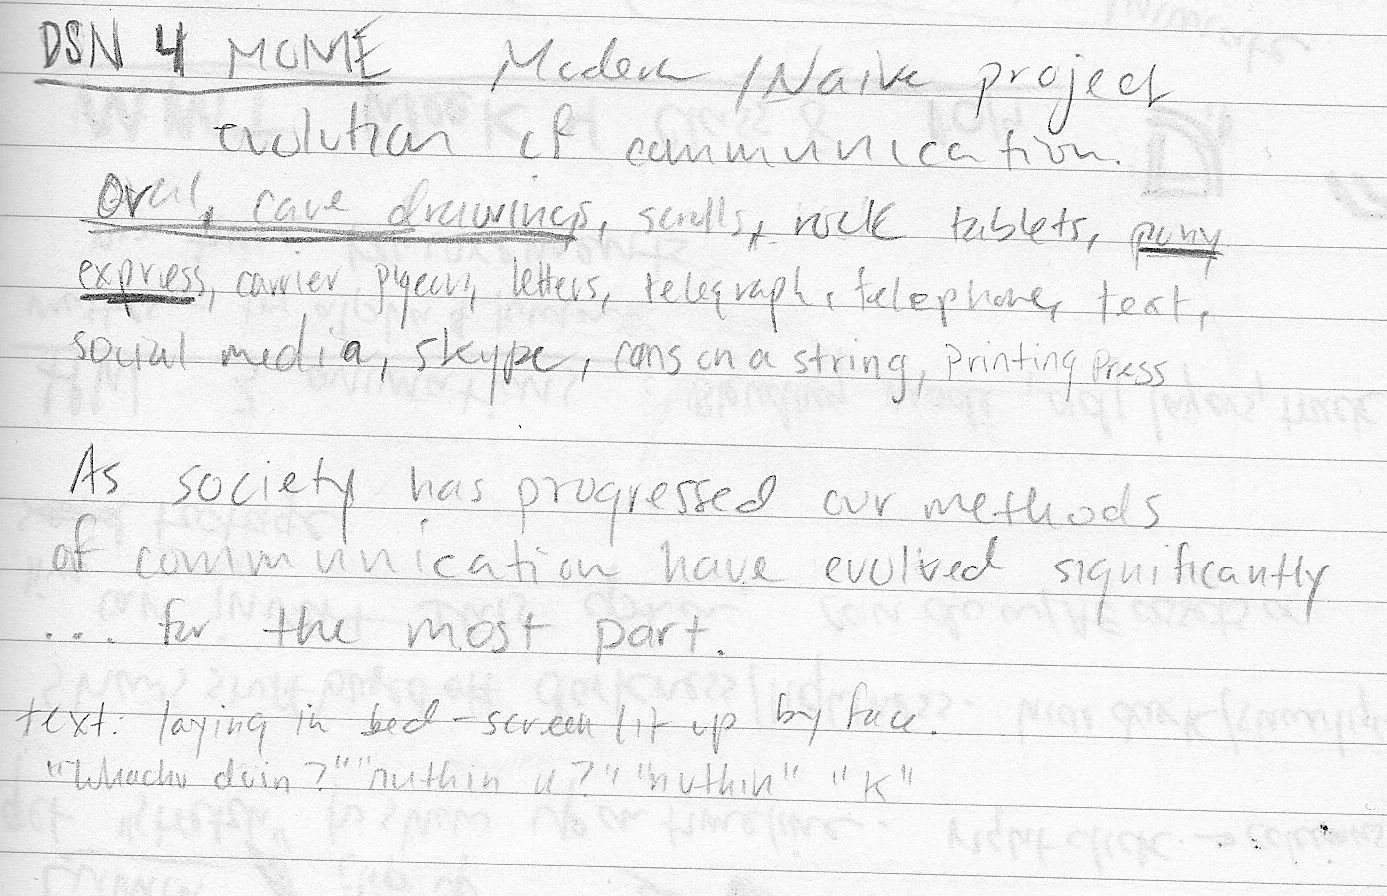 DSN 4 MOME Modern / Naive project
evolution of communication.
Oral, cave drawings, scrolls, rock tablets, pony
express, carrier pigeons, letters, telegraph, telephone, text,
social media, skype, cans on a string, Printing Press
As society has progressed our methods
of communication have evolved significantly
... for the most part.
text: laying in bed - screen lit up by face.
"Whachu doin?" "nuthin u?" "nuthin" "K"